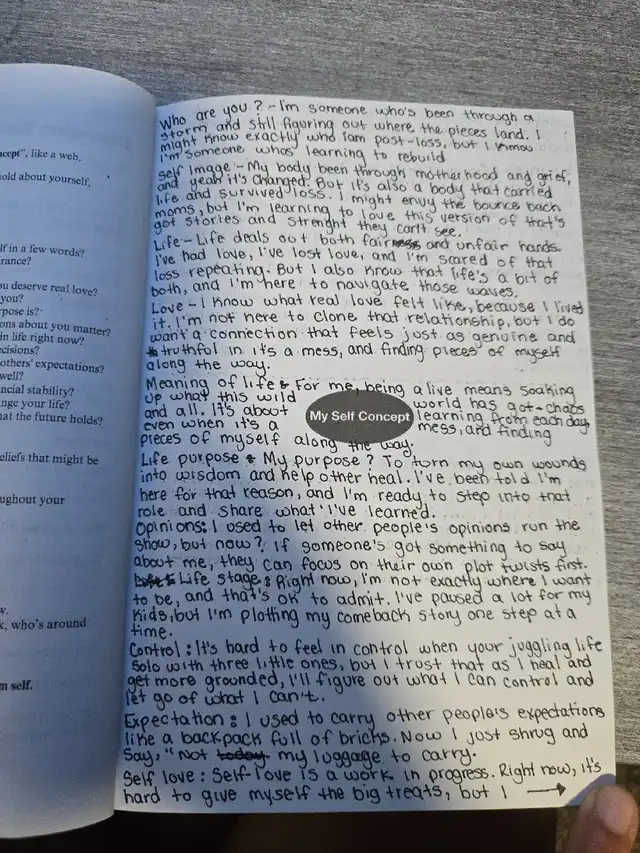 cept", like a web,
old about yourself,
lf in a few words?
rance?
u deserve real love?
you?
pose is?
ons about you matter?
in life right now?
cisions?
others' expectations?
well?
ncial stability?
nge your life?
at the future holds?
eliefs that might be
ughout your
w.
k, who's around
m self.
Who are you? - I'm someone who's been through a
storm and still figuring out where the pieces land. I
might know exactly who I am post-loss, but I know
I'm someone whos' learning to rebuild
Self Image - My body been through motherhood and grief,
and yeah it's changed. But it's also a body that carried
life and survived loss. I might envy the bounce back
moms, but I'm learning to love this version of that's
got stories and strenght they can't see.
Life - Life deals out both fair and unfair hands.
I've had love, I've lost love, and I'm scared of that
loss repeating. But I also know that life's a bit of
both, and I'm here to navigate those waves.
Love - I know what real love felt like, because I lived
it. I'm not here to clone that relationship, but I do
want a connection that feels just as genuine and
truthful in it's a mess, and finding pieces of myself
along the way.
Meaning of life & For me, being a live means soaking
up what this wild world has got - chaos
and all. It's about My Self Concept learning from each day,
even when it's a mess, and finding
pieces of myself along the way.
Life purpose & My purpose? To turn my own wounds
into wisdom and help other heal. I've been told I'm
here for that reason, and I'm ready to step into that
role and share what I've learned.
Opinions: I used to let other people's opinions run the
show, but now? If someone's got something to say
about me, they can focus on their own plot twists first.
Life stage: Right now, I'm not exactly where I want
to be, and that's ok to admit. I've paused a lot for my
kids, but I'm plotting my comeback story one step at a
time.
Control: It's hard to feel in control when your juggling life
solo with three little ones, but I trust that as I heal and
get more grounded, I'll figure out what I can control and
let go of what I can't.
Expectation: I used to carry other people's expectations
like a backpack full of bricks. Now I just shrug and
say, "Not today my luggage to carry.
Self love: Self-love is a work in progress. Right now, it's
hard to give myself the big treats, but I →